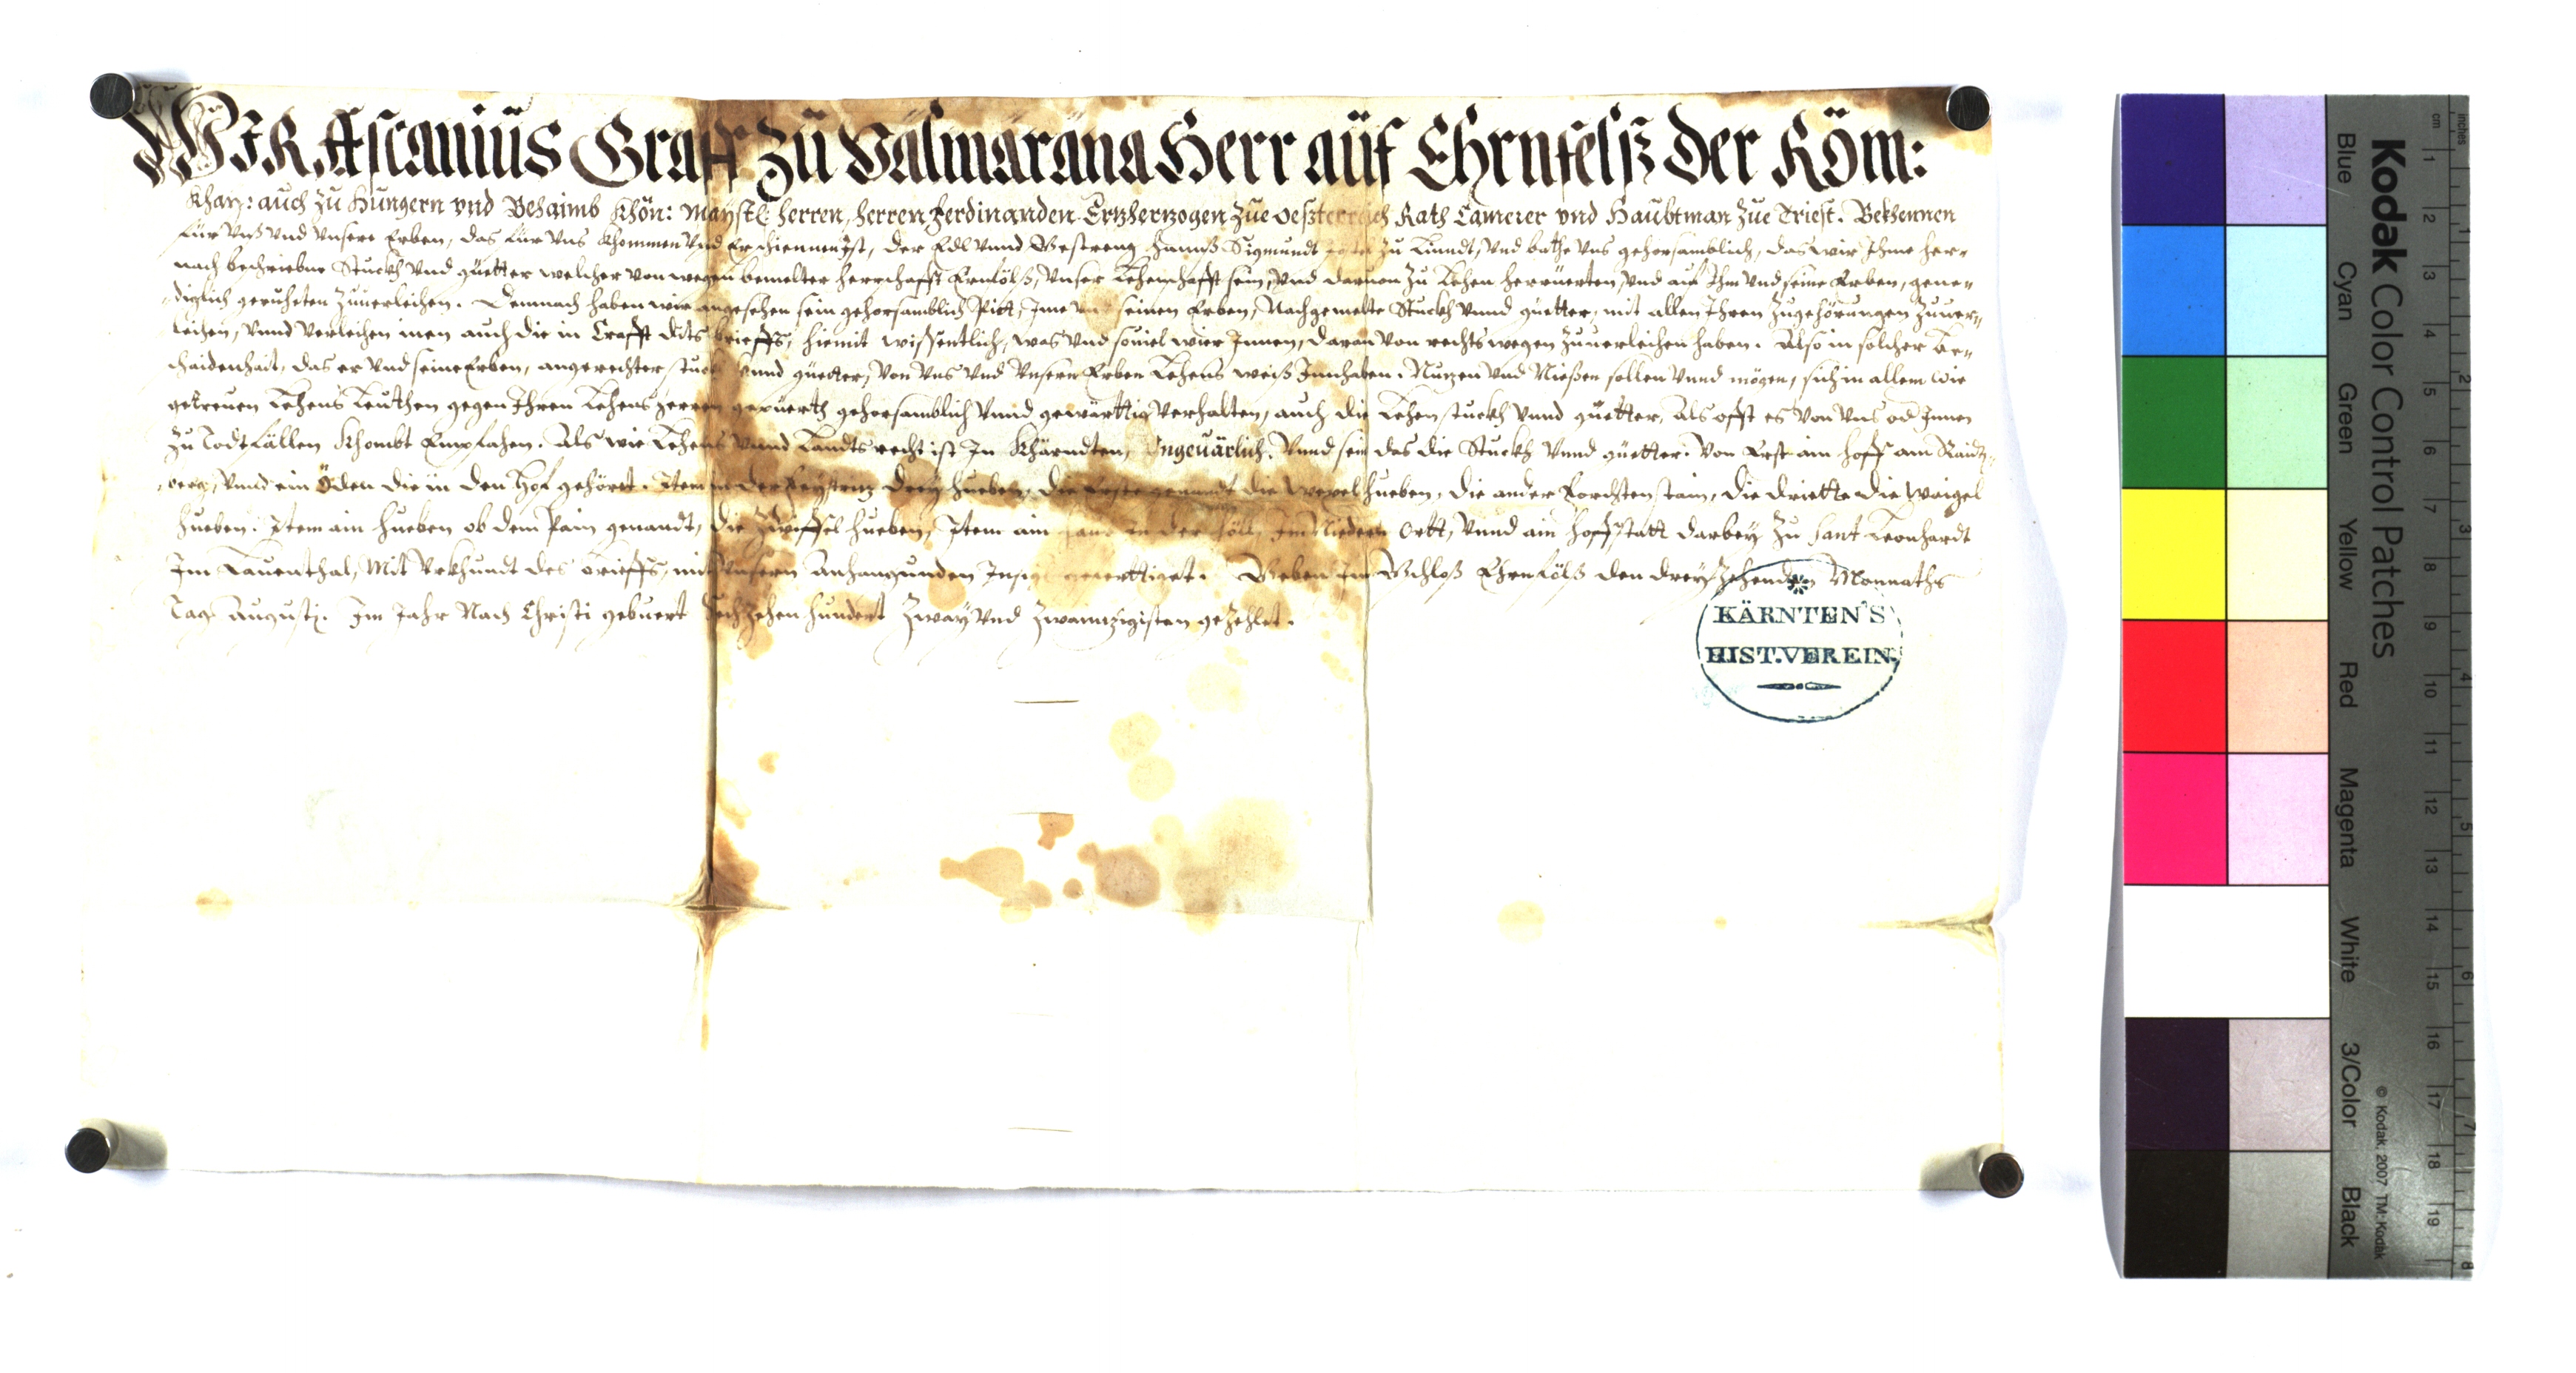 WIR Ascanius Graff zu Valmarana Herr auf Ehrnfelß der Röm:
Khay: auch zu Hungern vnd Behaimb Khön: Mayste: herren, herren Ferdinanden Ertzhertzogen zue Oeßterreich Rath Camerer vnd Haubtman zue Triest. Bekhennen
für Vnß vnd Vnsere Erben, das für Vns khommen Vnd Erschiennen ist, der Edl Vnnd Gestreng Hannß Sigmundt zu Vnndt, Vnd bathe Vns gehorsamblich, das wir Ihme her-
nach beschriebne Stuckh Vnd güetter welcher von wegen bemelter herrschafft Ernfölß, Vnser Lehenschafft sein, Vnd darvon zu Lehen herrüerten, Vnd auf Ihm Vnd seine Erben, gene-
diglich geruheten zuuerleihen. Demnach haben wir angesehen sein gehorsamblich Pitt, Ime vnd seinen Erben, Nachgemelte Stuckh Vnnd güetter, mit allen Ihren Zugehörungen zuuer-
leihen, Vnnd Verleihen inen auch die in Crafft dits brieffs, hiemit wissentlich, was Vnd souiel wier Innen, daran Von rechts wegen zuuerleihen haben. Also in solcher be-
schaidenhait, das er Vnd seine Erben, angerechter stuckh Vnnd güetter, Von Vns Vnd Vnsern Erben Lehens weiß Innhaben. Nutzen Vnd Nießen sollen Vnnd mögen, sich in allem wie
getreuen Lehens Leuthen gegen Ihren Lehens herren gepuerth gehorsamblich Vnnd gewärttig Verhalten, auch die Lehen stuckh Vnnd güetter, Als offt es Von Vns od Innen
zu Todtfällen khombt Empfahen. Als wie Lehens Vnnd Landts recht ist In Khärndten, Vngeuärlich. Vnnd sein das die Stuckh Vnnd güetter. Von Erst ain hoff am Raidt-
berg, Vnnd ein Öden die in den Hof gehört. Item in der Feystritz drey hueben, die Erste genandt die Wexel hueben, die ander Forchtenstain, die dritte die Weigel
hueben. Item ain hueben ob dem Pain genandt, die Zwiffel hueben, Item ain in der Föll, Im Niedern Ortt, Vnnd ain hoffstatt darbey zu Sant Leonhardt
Im Lauenthal, Mit Vrkhundt des brieffs, mit Vnsern Anhangunden Insigl geferttiget. Geben Im Schloß Ehrnfölß den dreyzehenden Monnaths
Tag Augusti. Im Jahr Nach Christi gebuert Sechzehen hundert Zway Vnd Zwaintzigisten gezehlet.
KÄRNTEN'S
HIST.VEREIN,
Kodak Color Control Patches
Blue Cyan Green Yellow Red Magenta White 3/Color Black
© Kodak, 2007 TM: Kodak
inches 1 2 3 4 5 6 7 8
cm 1 2 3 4 5 6 7 8 9 10 11 12 13 14 15 16 17 18 19